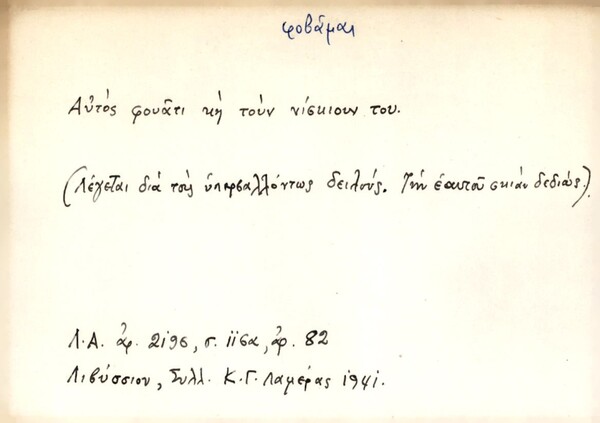 φοβᾶμαι
Αὐτὸς φουᾶτι κὴ τοὺν νίσκιουν του.
(Λέγεται διὰ τοὺς ὑπερβαλλόντως δειλούς. Τὴν ἑαυτοῦ σκιὰν δεδιώς.)
Λ.Α. ἀρ. 2195, σ. 115α, ἀρ. 82
Λιβύσσιον, Συλλ. Κ.Γ. Λαμέρας 1941.